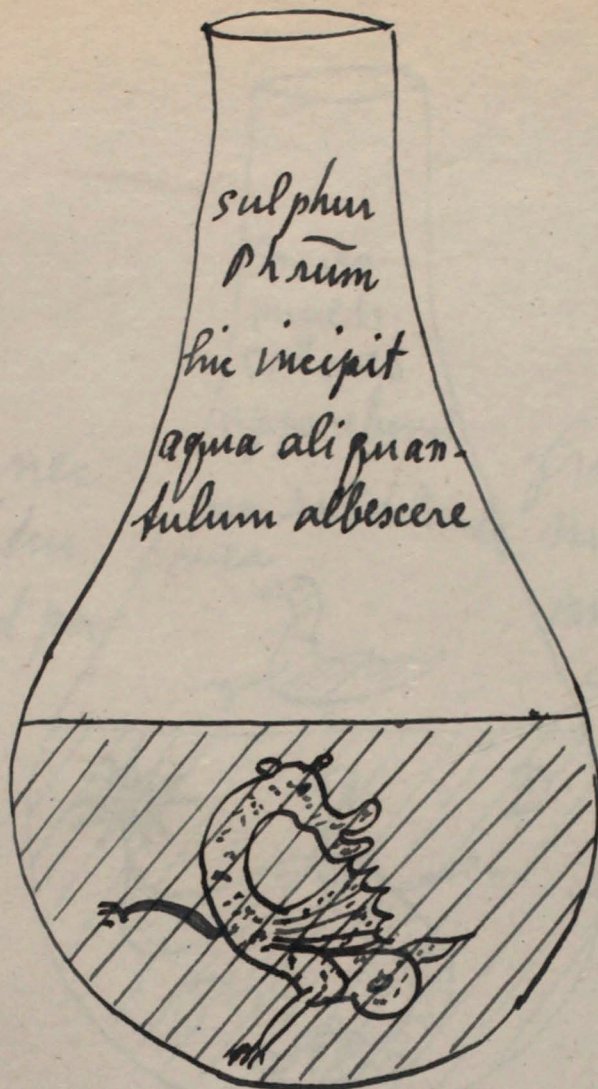 sulphur
Phrūm
hic incipit
aqua aliquan-
tulum albescere